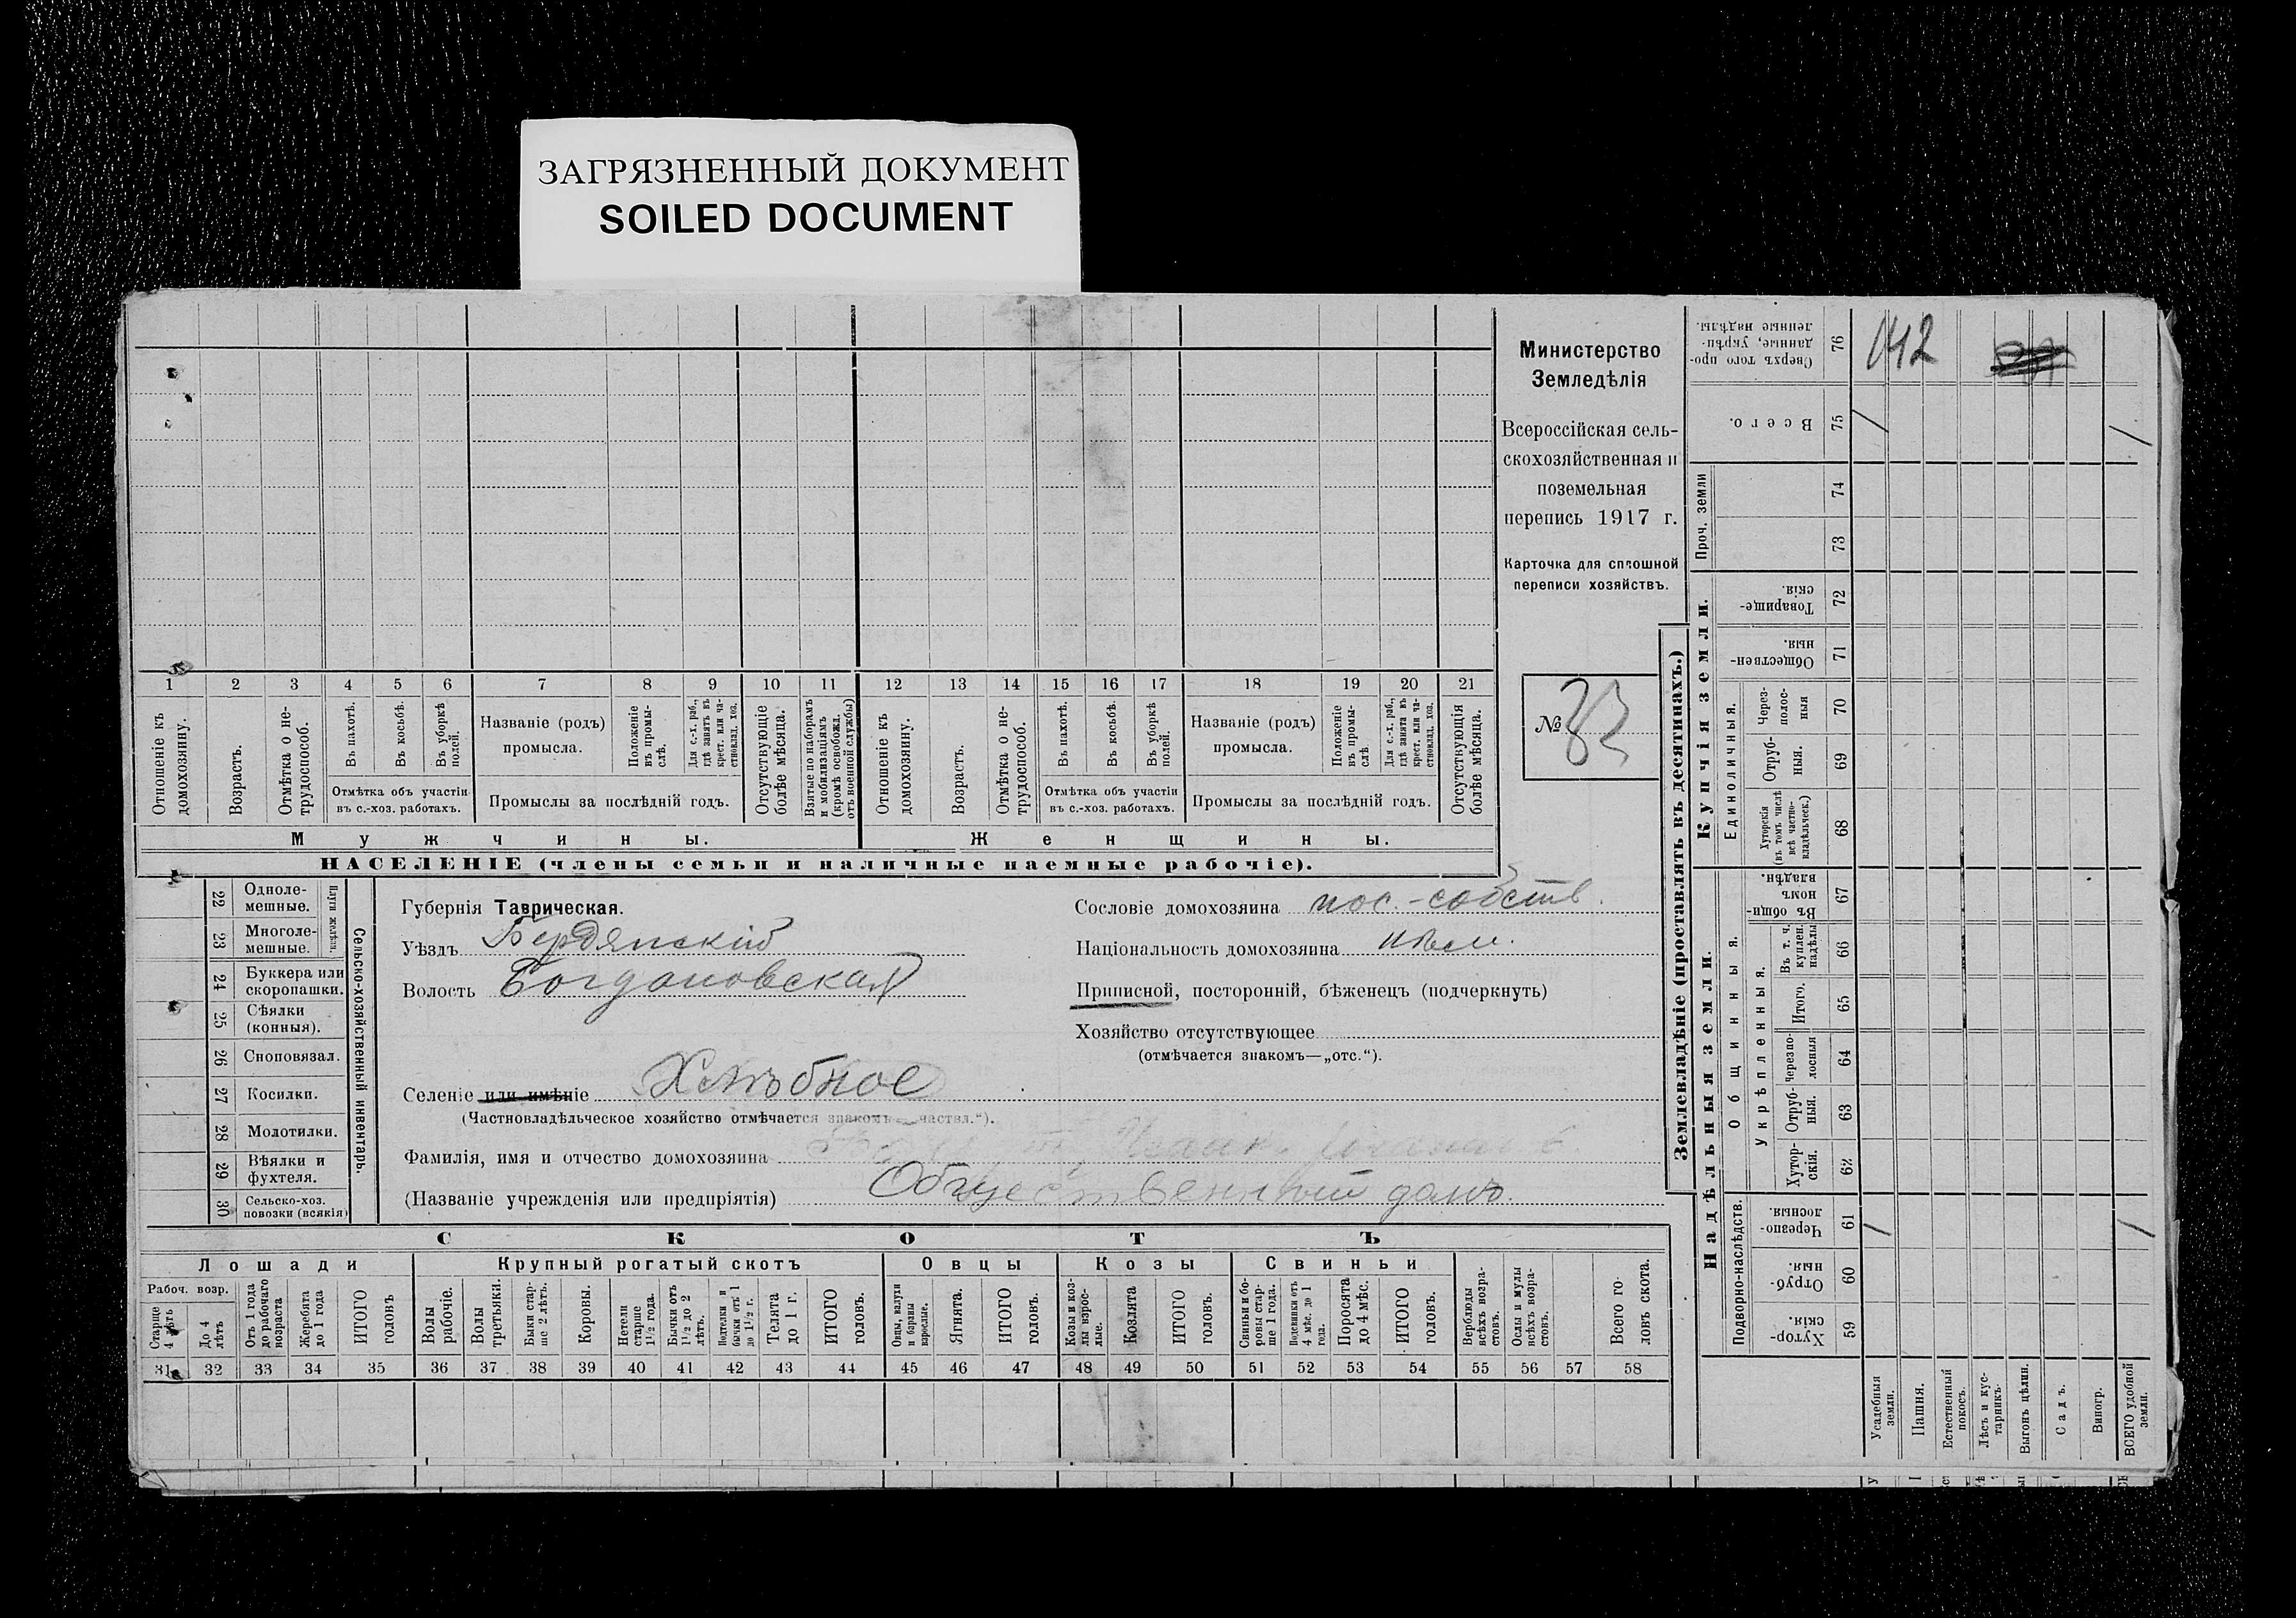 ЗАГРЯЗНЕННЫЙ ДОКУМЕНТ
SOILED DOCUMENT
Министерство
Земледѣлія
Всероссійская сель-
скохозяйственная и
поземельная
перепись 1917 г.
Карточка для сплошной
переписи хозяйствъ.
№ 33
1 2 3 4 5 6 7 8 9 10 11 12 13 14 15 16 17 18 19 20 21
Отношеніе къ домохозяину.
Возрастъ.
Отмѣтка о не-трудоспособ.
Въ пахотѣ.
Въ косьбѣ.
Въ уборкѣ полей.
Отмѣтка объ участіи въ с.-хоз. работахъ.
Названіе (родъ) промысла.
Положеніе въ промы-слѣ.
Для с.-х. раб., гдѣ занятъ въ крест. или ча-стновлад. хоз.
Промыслы за послѣдній годъ.
Отсутствующіе болѣе мѣсяца.
Взятые по наборамъ и мобилизаціямъ (кромѣ освобожд. отъ военной службы)
Отношеніе къ домохозяину.
Возрастъ.
Отмѣтка о не-трудоспособ.
Въ пахотѣ.
Въ косьбѣ.
Въ уборкѣ полей.
Отмѣтка объ участіи въ с.-хоз. работахъ.
Названіе (родъ) промысла.
Положеніе въ промы-слѣ.
Для с.-х. раб., гдѣ занята въ крест. или ча-стновлад. хоз.
Промыслы за послѣдній годъ.
Отсутствующія болѣе мѣсяца.
Мужчины.
Женщины.
НАСЕЛЕНІЕ (члены семьи и наличные наемные рабочіе).
22 Одноле-мешные.
23 Многоле-мешные.
24 Буккера или скоропашки.
25 Сѣялки (конныя).
26 Сноповязал.
27 Косилки.
28 Молотилки.
29 Вѣялки и фухтеля.
30 Сельско-хоз. повозки (всякія)
Сельско-хозяйственный инвентарь.
Губернія Таврическая.
Уѣздъ Бердянскій
Волость Богдановская
Селеніе или имѣніе Хлѣбное
(Частновладѣльческое хозяйство отмѣчается знакомъ—„частвл.“).
Фамилія, имя и отчество домохозяина
(Названіе учрежденія или предпріятія) Общественный домъ.
Сословіе домохозяина пос.-собств.
Національность домохозяина нѣм.
Приписной, посторонній, бѣженецъ (подчеркнуть)
Хозяйство отсутствующее
(отмѣчается знакомъ—„отс.“).
СКОТЪ
Лошади
Крупный рогатый скотъ
Овцы
Козы
Свиньи
Рабоч. возр.
Старше 4 лѣтъ
До 4 лѣтъ
Отъ 1 года до рабочаго возраста
Жеребята до 1 года
ИТОГО головъ
Волы рабочіе.
Волы третьяки.
Быки стар-ше 2 лѣтъ.
Коровы.
Нетели старше 1½ года.
Бычки отъ 1½ до 2 лѣтъ.
бычки отъ 1 до 1½ г.
Телята до 1 г.
ИТОГО головъ.
Овцы, валухи и бараны взрослые.
Ягнята.
ИТОГО головъ.
Козы и коз-лы взрос-лые.
Козлята
ИТОГО головъ.
Свиньи и бо-ровы стар-ше 1 года.
Подсвинки отъ 4 мѣс. до 1 года.
Поросята до 4 мѣс.
ИТОГО головъ.
Верблюды всѣхъ возра-стовъ.
Ослы и мулы всѣхъ возра-стовъ.
Всего го-ловъ скота.
31 32 33 34 35 36 37 38 39 40 41 42 43 44 45 46 47 48 49 50 51 52 53 54 55 56 57 58
Землевладѣніе (проставлять въ десятинахъ.)
Купчія земли.
Надѣльныя земли.
Сверхъ того про-данные, укрѣп-ленные надѣлы.
76
Всего.
75
Проч. земли
74
73
Товарище-скія.
72
Обществен-ныя.
71
Единоличныя.
Через-полос-ныя
70
Отруб-ныя.
69
Хуторскія (въ томъ числѣ всѣ частно-владѣльческ.)
68
Общинныя.
Въ общи-номъ владѣн.
67
Укрѣпленныя.
Въ т. ч. куплен. надѣлы
66
Итого.
65
Черезпо-лосныя
64
Отруб-ныя.
63
Хутор-скія.
62
Подворно-наслѣдств.
Черезпо-лосныя.
61
Отруб-ныя.
60
Хутор-скія.
59
Усадебныя земли.
Пашня.
Естественный покосъ.
Лѣсъ и кус-тарникъ.
Выгонъ цѣлин.
Садъ.
Виногр.
ВСЕГО удобной земли.